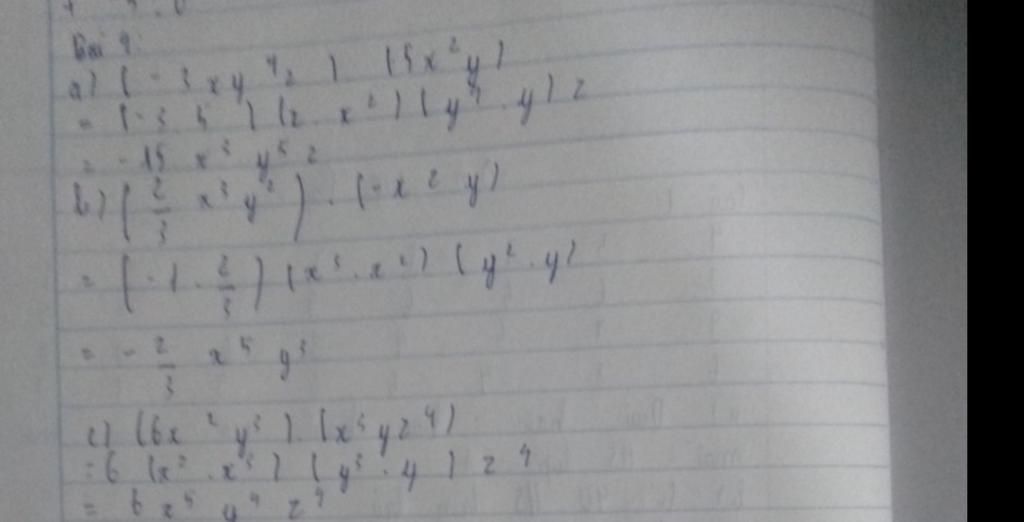 Bài 9:
a) (-3xy⁴z) (5x²y)
= (-3.5) (x.x²) (y⁴.y) z
= -15 x³ y⁵ z
b) (2/3 x³ y²) . (-x² y)
= (-1 . 2/3) (x³ . x²) (y² . y)
= - 2/3 x⁵ y³
c) (6x² y³) . (x³ yz⁴)
= 6 (x² . x³) (y³ . y) z⁴
= 6 x⁵ y⁴ z⁴